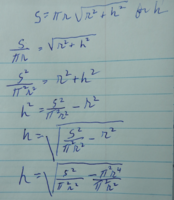 S = πr √(r² + h²) for h
S/(πr) = √(r² + h²)
S²/(π²r²) = r² + h²
h² = S²/(π²r²) - r²
h = √(S²/(π²r²) - r²)
h = √(S²/(π²r²) - π²r⁴/(π²r²))